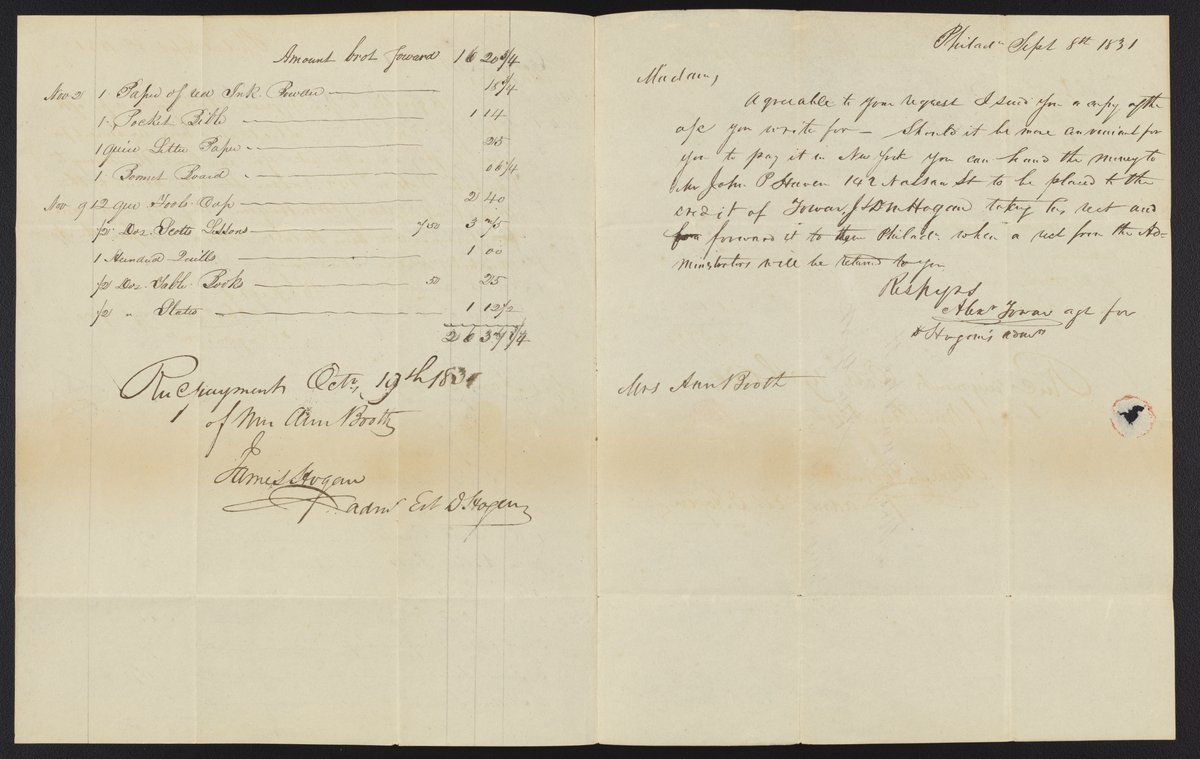 Amount brot forward 16 20 3/4
Nov 2 1 Paper of red Ink Powder 15 3/4
1 Pocket Bible 1 14
1 quire Letter Paper 25
1 Bonnet Board 06 1/4
Nov 9 12 qre Fools Cap 2 40
1/2 Doz Scotts Lessons 7 50 3 75
1 Hundred Quills 1 00
1/2 Doz Table Books 50 25
1/2 " Slates 1 12 1/2
26 37 1/4
Rec payment Octr 19th 1831
of Mrs Ann Booth
James Hogan
admr Est D Hogan
Philada Sept 8th 1831
Madam,
Agreeable to your request I send you a copy of the
a/c you write for — Should it be more convenient for
you to pay it in New York you can hand the money to
Mr John P Haven 142 Nassau St to be placed to the
credit of Towar J & D M Hogan taking his rect and
forward it to Philada when a rect from the Ad-
ministrators will be returned to you
Respys
Alexr Towar agt for
D Hogan's admrs
Mrs Ann Booth